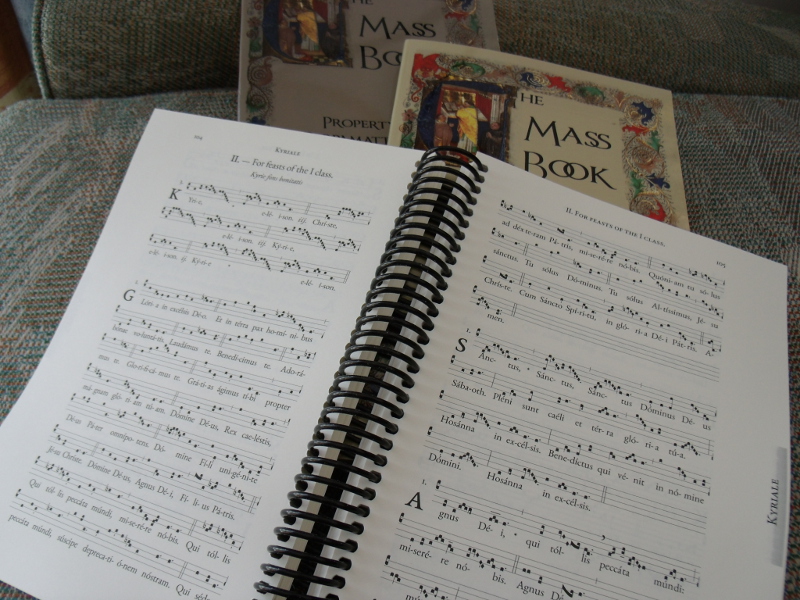 HE
MASS
BO
PROPERT
THE
MASS
BOOK
104
KYRIALE
II. — For feasts of the I class.
Kyrie fons bonitatis
K Yri-e, e-lé- i-son. iij. Chri-ste,
e-lé- i-son. iij. Ký-ri-e,
e-lé- i-son. ij. Ký-ri-e
e-lé- i-son.
G Lóri- a in excélsis Dé-o. Et in térra pax ho-mí-ni-bus
bónae volun-tá-tis. Laudámus te. Benedícimus te. Ado-rá-
mus te. Glo-ri-fi-cá-mus te. Grá-ti- as ágimus tí-bi propter
má-gnam gló-ri- am tú-am. Dómine Dé-us, Rex cae-léstis,
Dé-us Pá-ter omní-pot-ens. Dó- mine Fí-li uni-gé-ni-te
Jé-su Christe. Dómine Dé-us, Agnus Dé- i, Fí- li- us Pá-tris.
Qui tól- lis peccáta múndi, mi-se-ré-re nó-bis. Qui tól- lis
peccáta múndi, súscipe depreca-ti- ó-nem nóstram. Qui séd
II. FOR FEASTS OF THE I CLASS.
105
ad déx-te-ram Pá-tris, mi-se-ré-re nó-bis. Quóni-am tu só- lus
sánctus. Tu sólus Dó-minus. Tu sólus Al-tíssimus, Jé- su
Chri-ste. Cum Sáncto Spí-ri-tu, in gló-ri-a Dé-i Pá-tris. A-
men.
S Anc- tus, Sánc- tus, Sánc- tus Dóminus Dé- us
Sába-oth. Pléni sunt caéli et tér-ra gló-ri-a tú-a.
Hosánna in ex-cél-sis. Bene-díctus qui vé- nit in nó- mine
Dómini. Hosánna in ex-cél-sis.
A gnus Dé- i, qui tól- lis peccáta múndi:
mi-seré- re nó- bis. Agnus D
KYRIALE